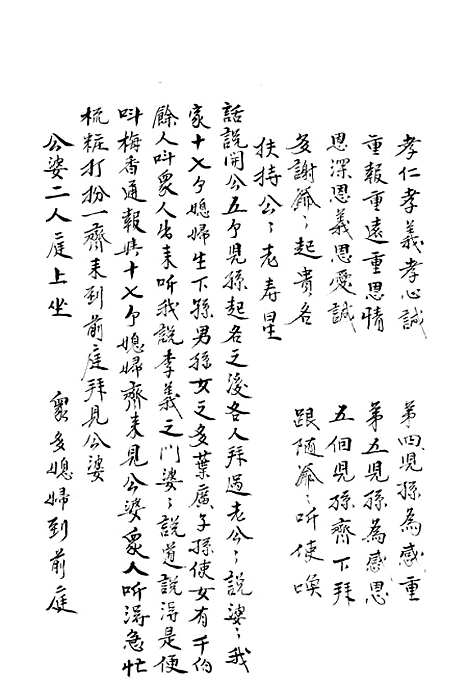 孝仁孝義孝心誠　第四児孫為感重
重報重遠重恩情　第五児孫為感恩
恩深恩義恩愛誠　五個児孫齊下拜
多謝爺〻起貴名　跟随爺〻听使喚
扶持公〻老寿星
話說閑公五个児孫起名之後各人拜過老公〻說婆〻我
家十七个媳婦生下孫男孫女之多葉廣子孫使女有千伯
餘人呌衆人出来听我說孝義之門婆〻說道說得是便
呌梅香通報與十七个媳婦齊来見公婆衆人听得急忙
梳粧打扮一齊来到前庭拜見公婆
公婆二人庭上坐　衆多媳婦到前庭